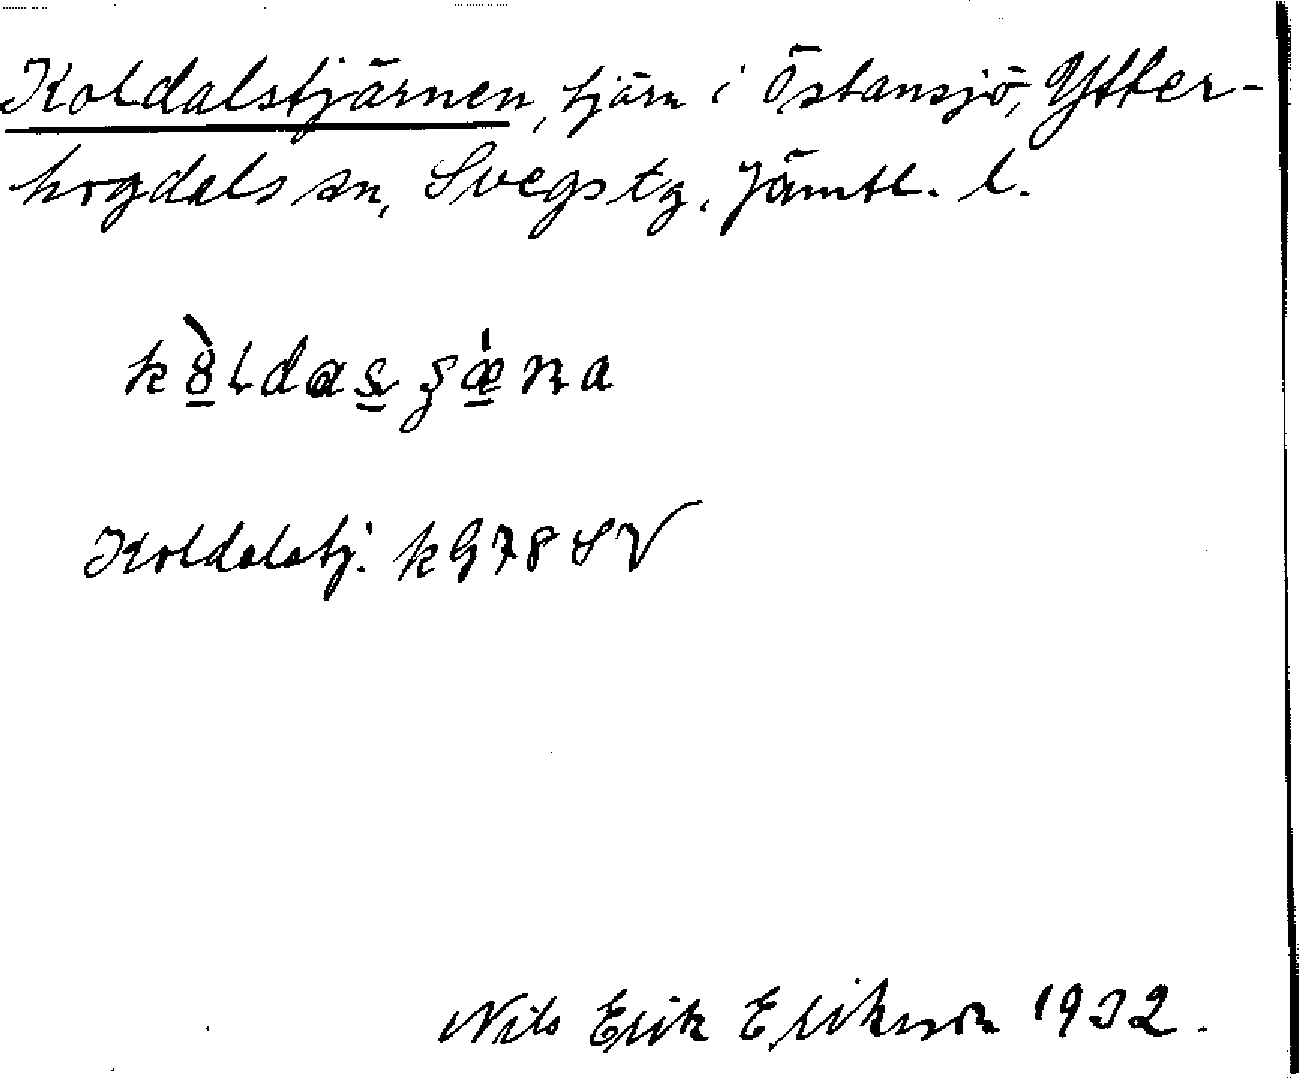 Koldalstjärnen, tjärn i Östansjö, Ytter-
hogdals sn, Svegs tg. Jämtl. l.
Koldalstj. k G 78 SV
Nils Erik Eriksson 1932.